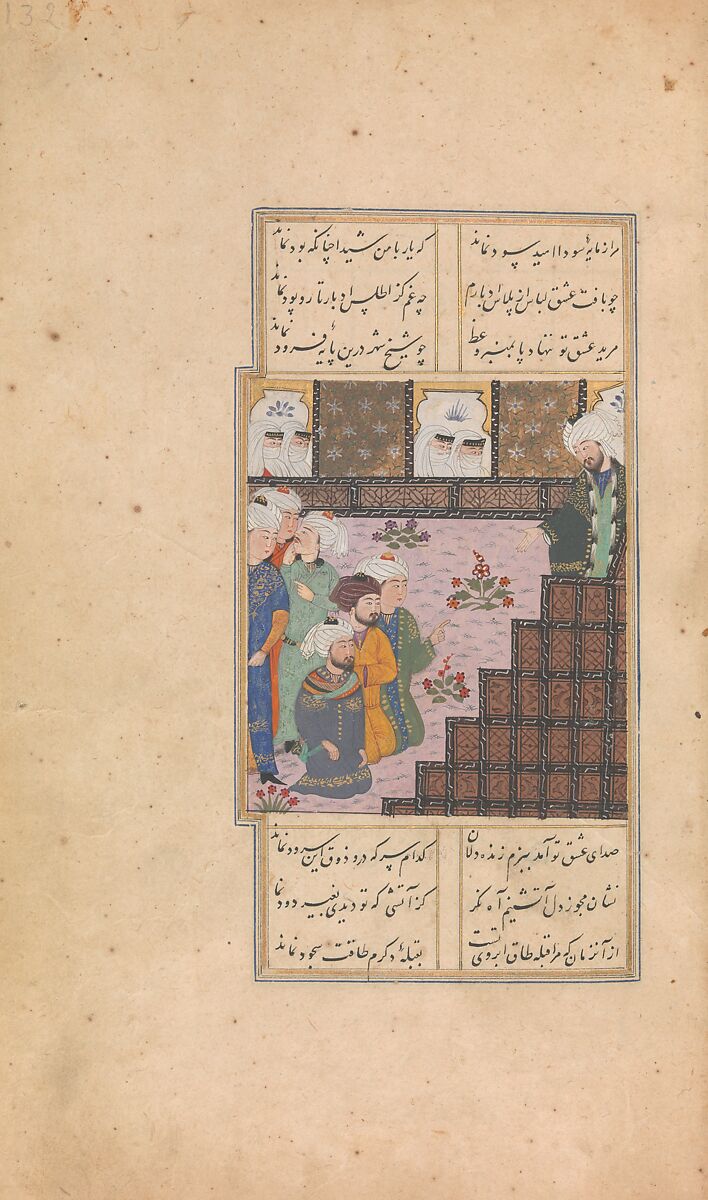 132
مرا ز مایهٔ سودا امید سود نماند
که یار با من شیدا چنانکه بود نماند
چو بافت عشق لباس از پلاس ادبارم
چه غم کز اطلس ادبار تار و پود نماند
مرید عشق تو ننهاد پا بمنبر وعظ
چو شیخ شهر درین پایهٔ فرود نماند
صدای عشق تو آمد ببزم زنده دلان
کدام سر که درو ذوق این سرود نماند
نشان مجوز دل آتشینم آه نگر
کز آتشی که تو دیدی بغیر دود نماند
از آنزمان که مرا قبله طاق ابروی تست
بقبلهٔ دکرم طاقت سجود نماند